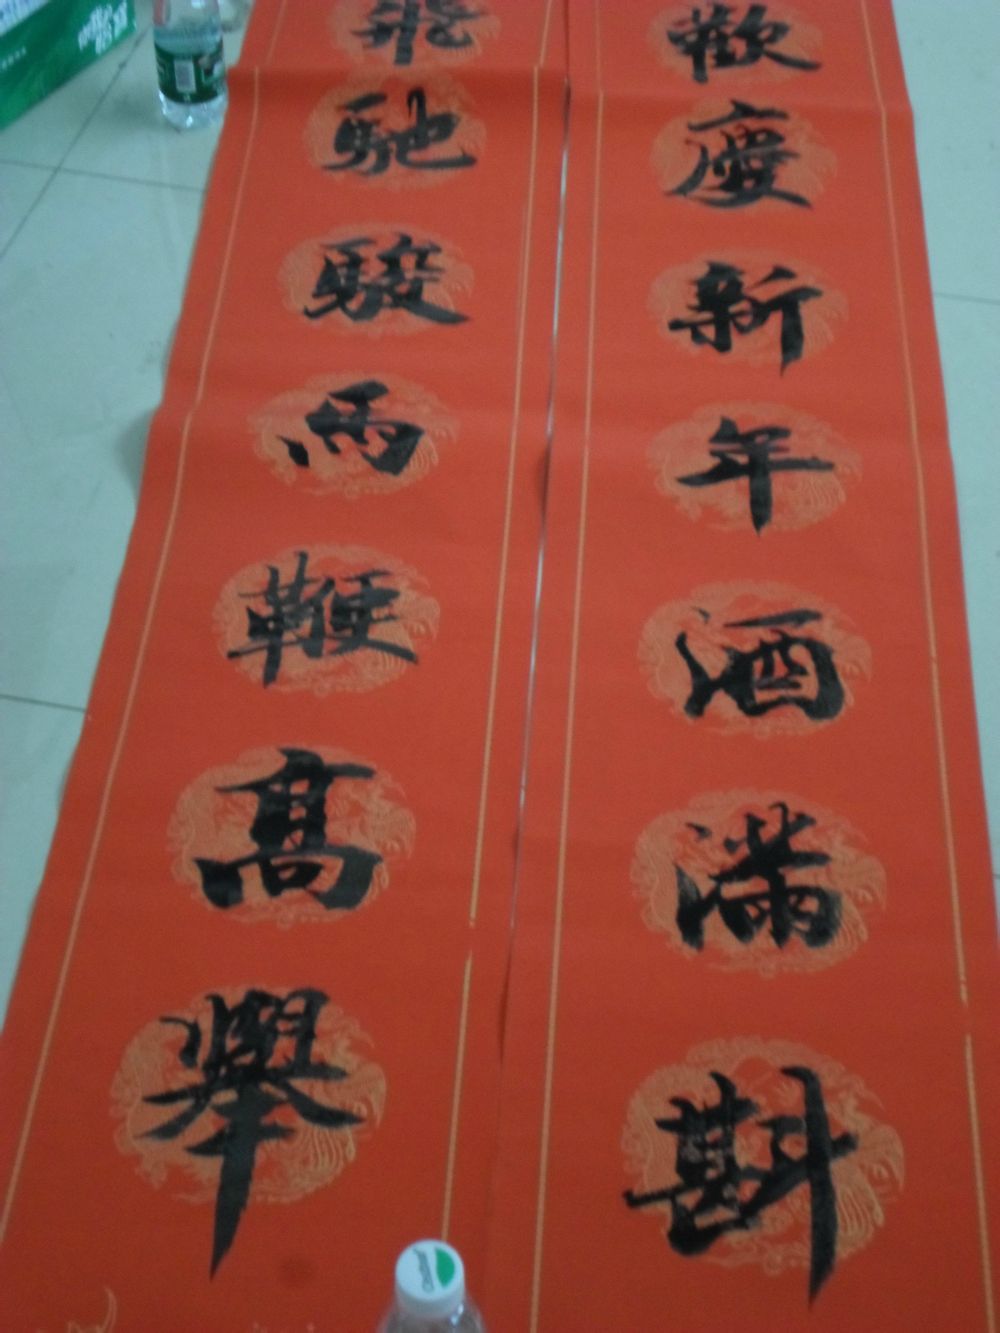 歡慶新年酒滿斟
飛馳駿馬鞭高舉